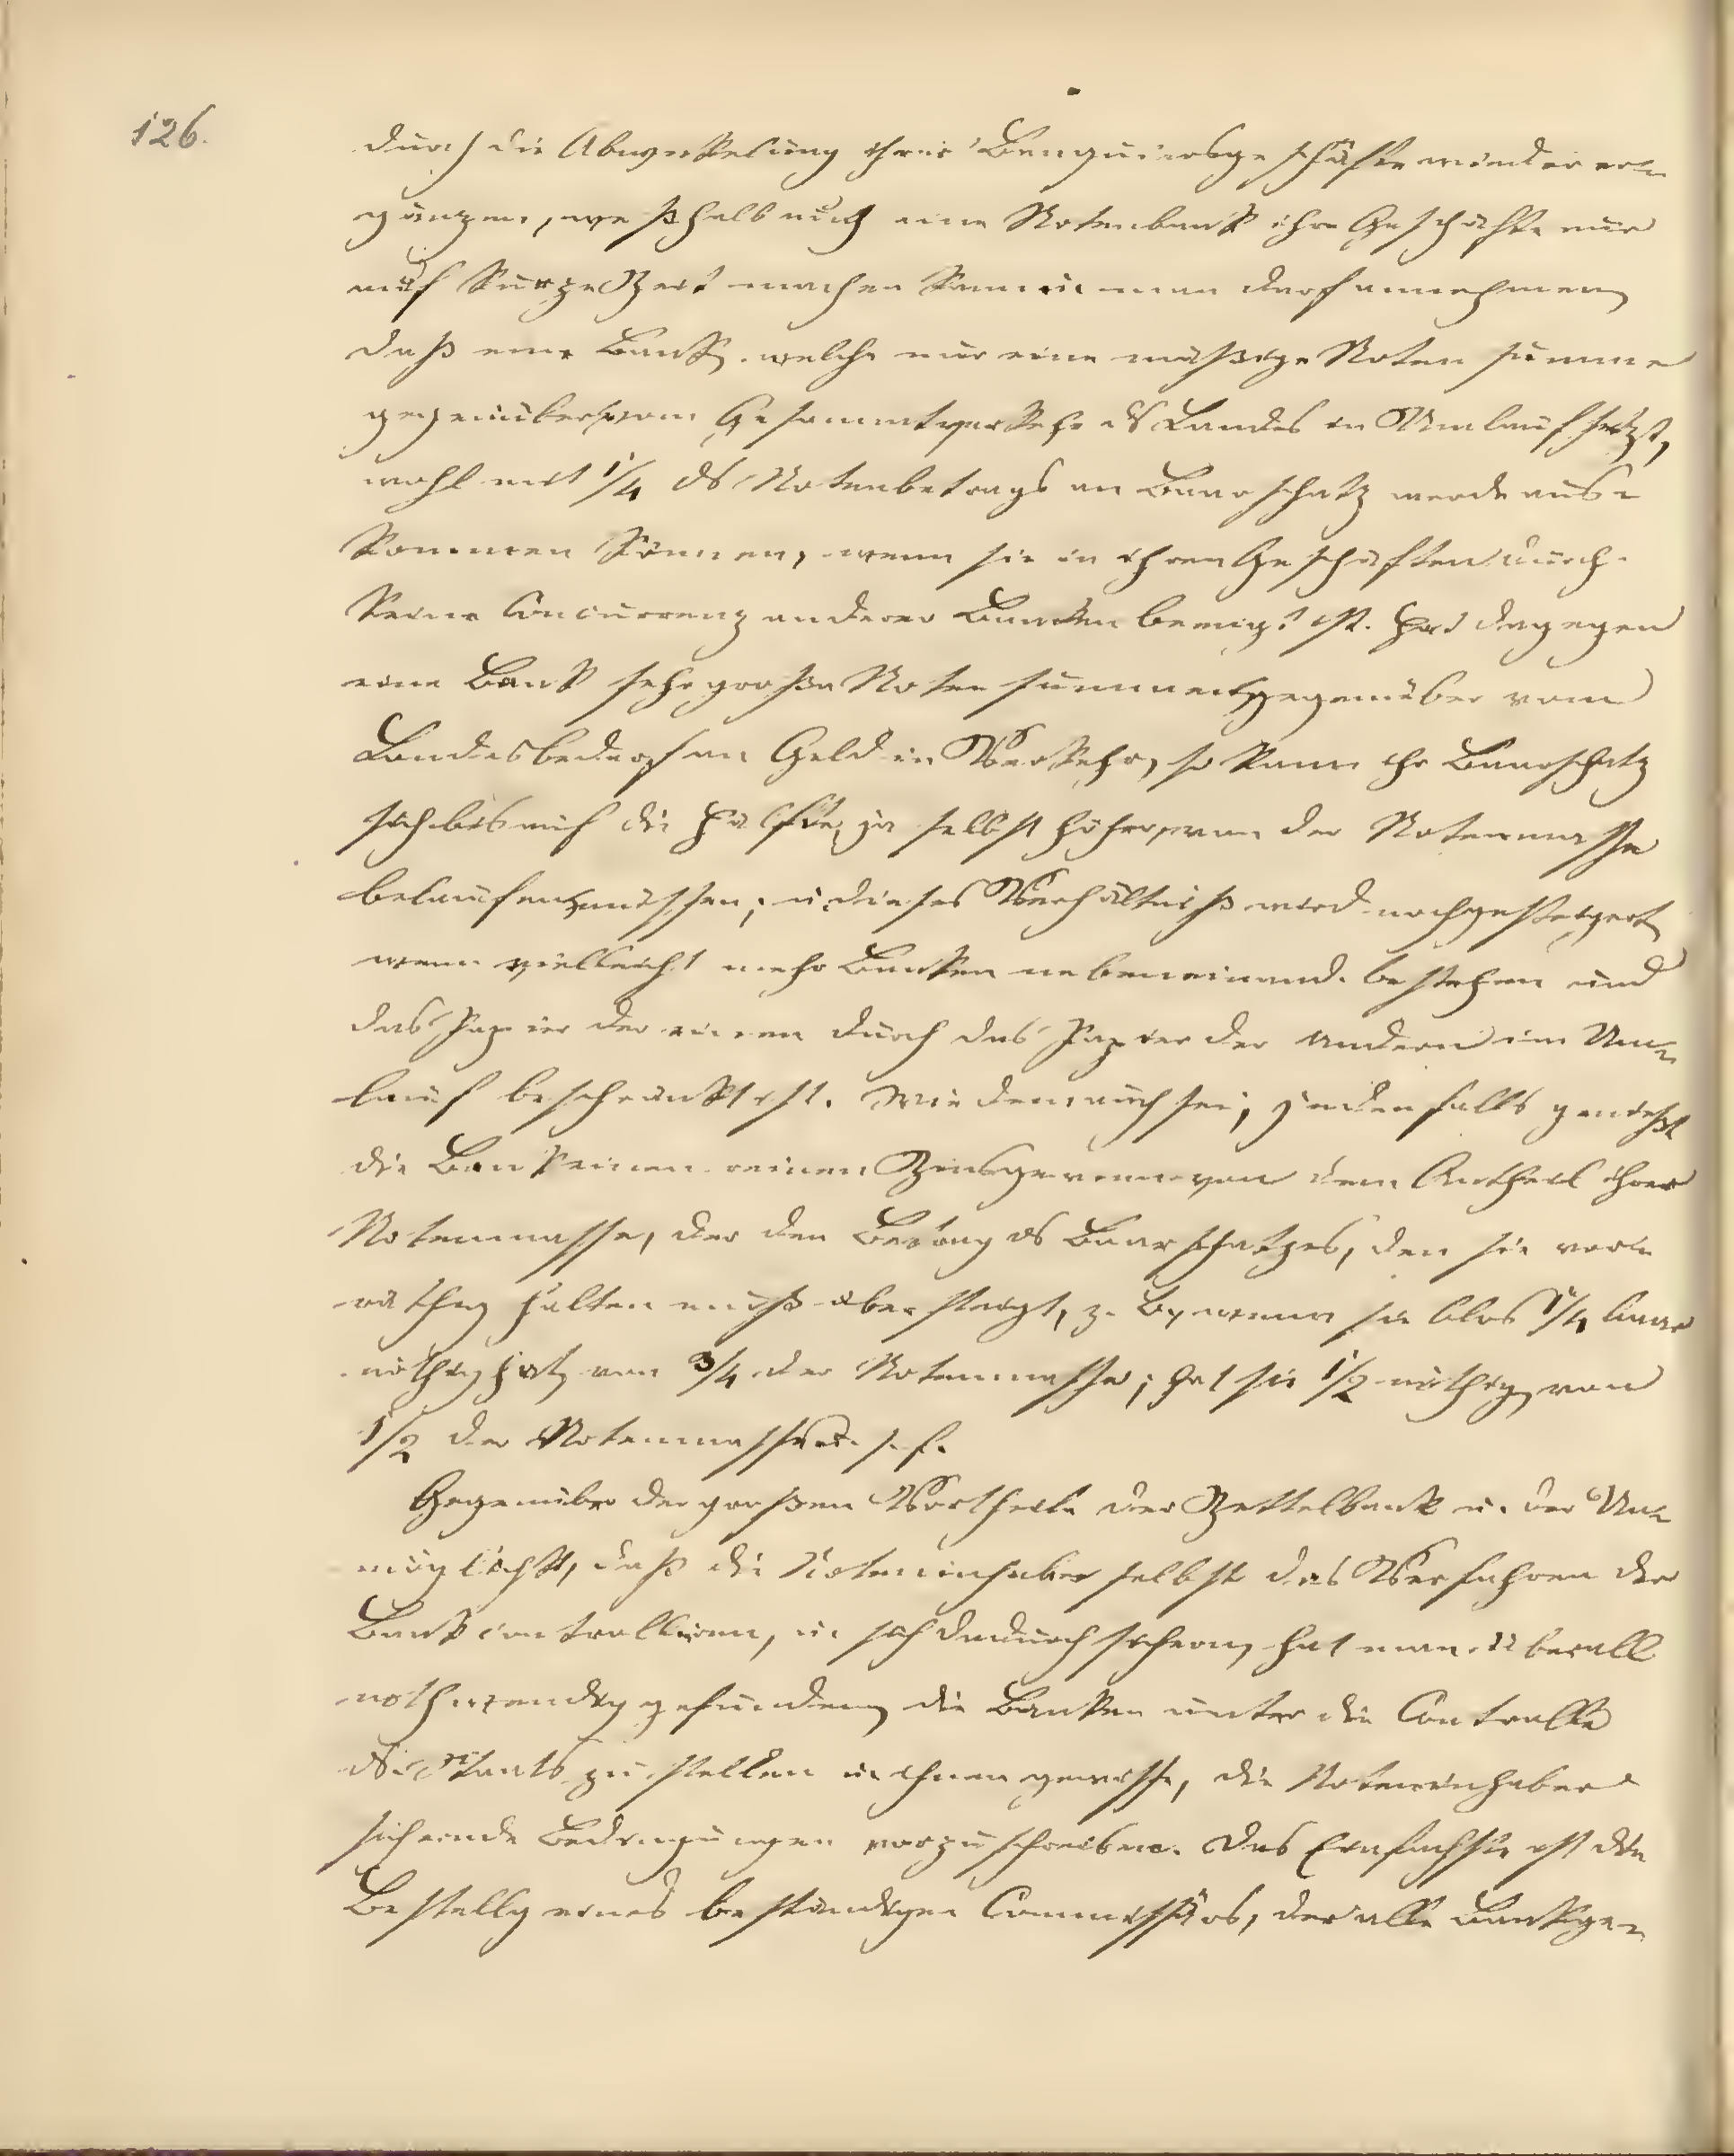 126.
durch die Abwickelung ihrer Banquiersgeschäfte wieder er-
gänzen, weßhalb auch eine Notenbank ihre Geschäfte nur
auf kurze Zeit machen kann u. man darf annehmen,
daß eine Bank, welche nur eine mäßige Notensumme
gegenüber vom Gesammtverkehr ds Landes in Umlauf setzt,
wohl mit 1/4 ds Notenbetrags an Baarschatz werde aus-
kommen können, wenn sie in ihren Geschäften durch
keine Concurrenz anderer Banken beengt ist. Hat dagegen
eine Bank sehr große Notensummen gegenüber vom
Landesbedarf an Geld in Verkehr, so kann ihr Baarschatz
sich bis auf die Hälfte, ja selbst höher, von der Notenmasse
belaufen müssen; u. dieses Verhältniß wird noch gesteigert,
wenn vielleicht mehr Banken nebeneinand. bestehen und
das Papier der einen durch das Papier der andern im Um-
lauf beschränkt ist. Wie dem auch sei, jedenfalls genießt
die Bank einen reinen Zinsgewinn von dem Antheil ihrer
Notenmasse, der den Betrag ds Baarschatzes, den sie vor-
räthig halten muß übersteigt, z. B. wenn sie blos 1/4 baar
nöthig hat, von 3/4 der Notenmasse; hat sie 1/2 nöthig, von
1/2 der Notenmasse u. s. f.
Gegenüber der großen Vortheile der Zettelbank u. der Un-
möglichkt, daß die Noteninhaber selbst das Verfahren der
Bank controlliren, u. sich dadurch sichern, hat man überall
nothwendig gefunden, die Banken unter die Controlle
ds Staats zu stellen u. ihnen gewisse, die Noteninhaber
sichernde Bedingungen vorzuschreiben. Das Einfachste ist die
Bestellg eines beständigen Commissärs, der alle Bankge-